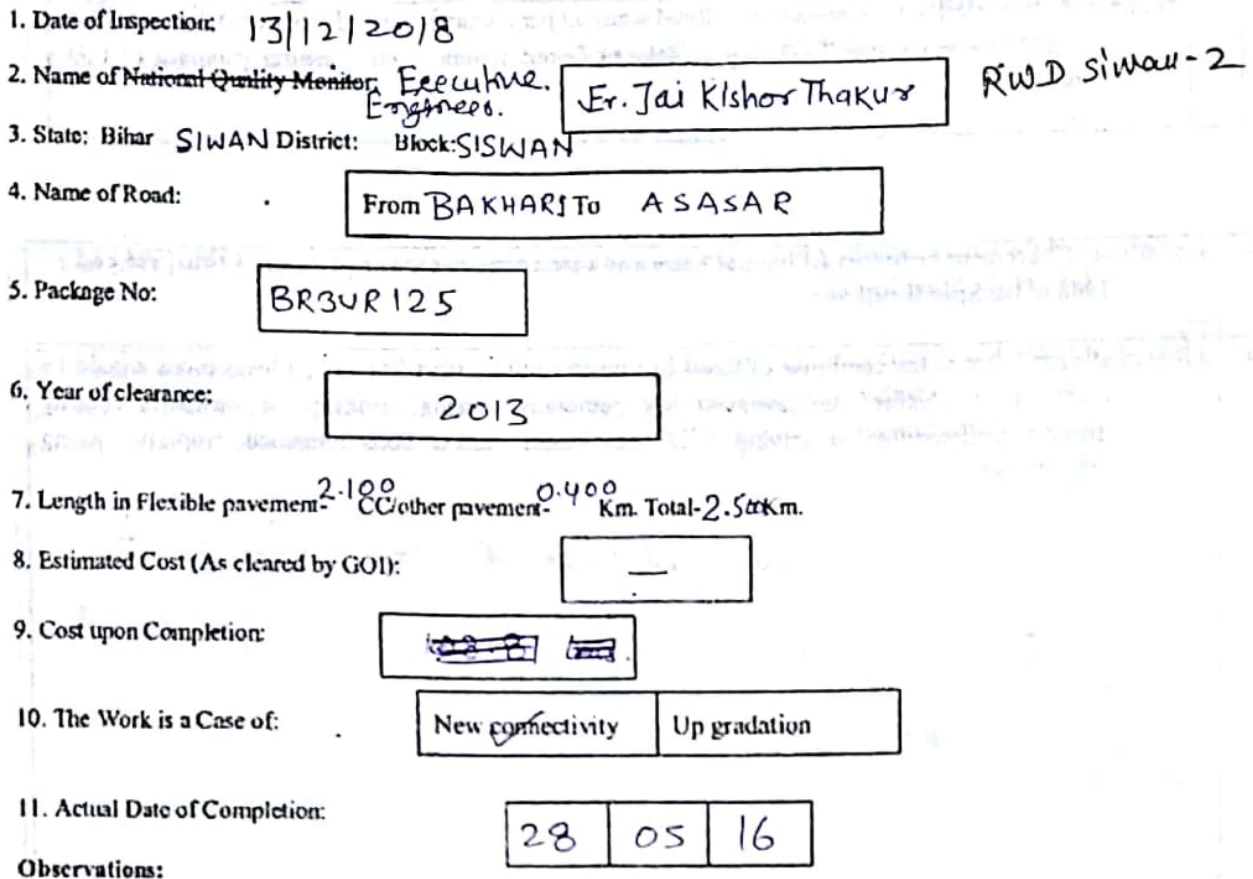 1. Date of Inspection: 13/12/2018
2. Name of National Quality Monitor: Executive Engineer. Er. Jai Kishor Thakur RWD Siwan-2
3. State: Bihar SIWAN District: Block: SISWAN
4. Name of Road: From BAKHARI To ASASAR
5. Package No: BR3UR125
6. Year of clearance: 2013
7. Length in Flexible pavement- 2.100 CC/other pavement- 0.400 Km. Total-2.500Km.
8. Estimated Cost (As cleared by GOI): —
9. Cost upon Completion:
10. The Work is a Case of: New connectivity Up gradation
11. Actual Date of Completion: 28 05 16
Observations: